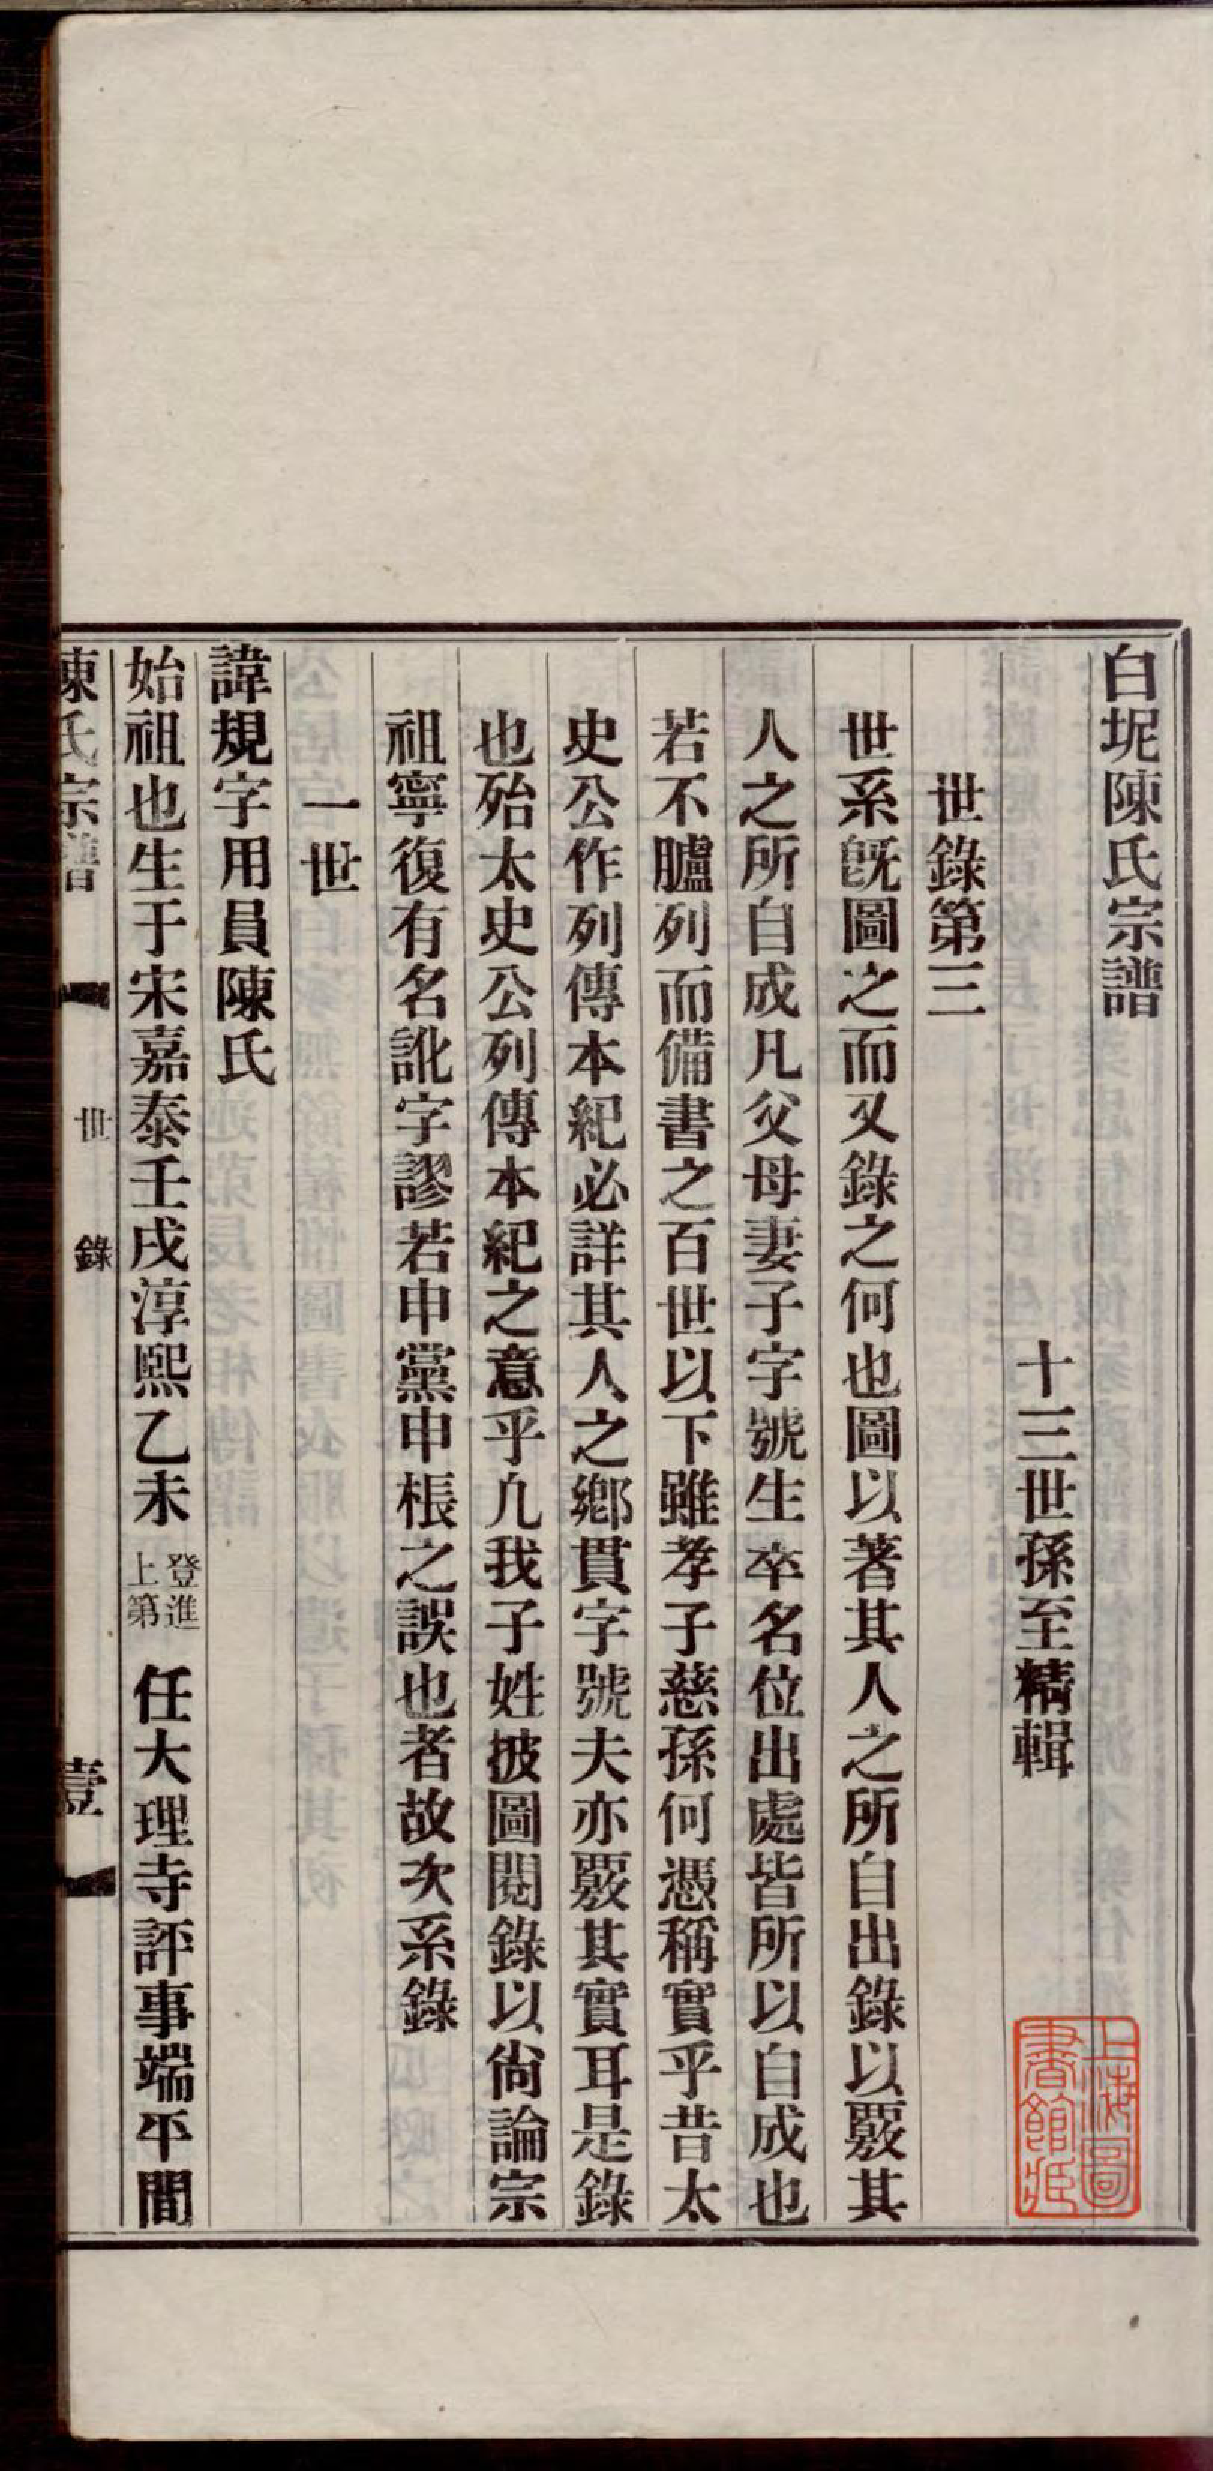 白坭陳氏宗譜
十三世孫至精輯
世錄第三
世系旣圖之而又錄之何也圖以著其人之所自出錄以覈其
人之所自成凡父母妻子字號生卒名位出處皆所以自成也
若不臚列而備書之百世以下雖孝子慈孫何憑稱實乎昔太
史公作列傳本紀必詳其人之鄉貫字號夫亦覈其實耳是錄
也殆太史公列傳本紀之意乎凢我子姓披圖閱錄以尙論宗
祖寧復有名訛字謬若申黨申棖之誤也者故次系錄
一世
諱規字用員陳氏
始祖也生于宋嘉泰壬戌淳熙乙未登進上第任大理寺評事端平間
陳氏宗譜 世錄 壹
上海圖書館藏